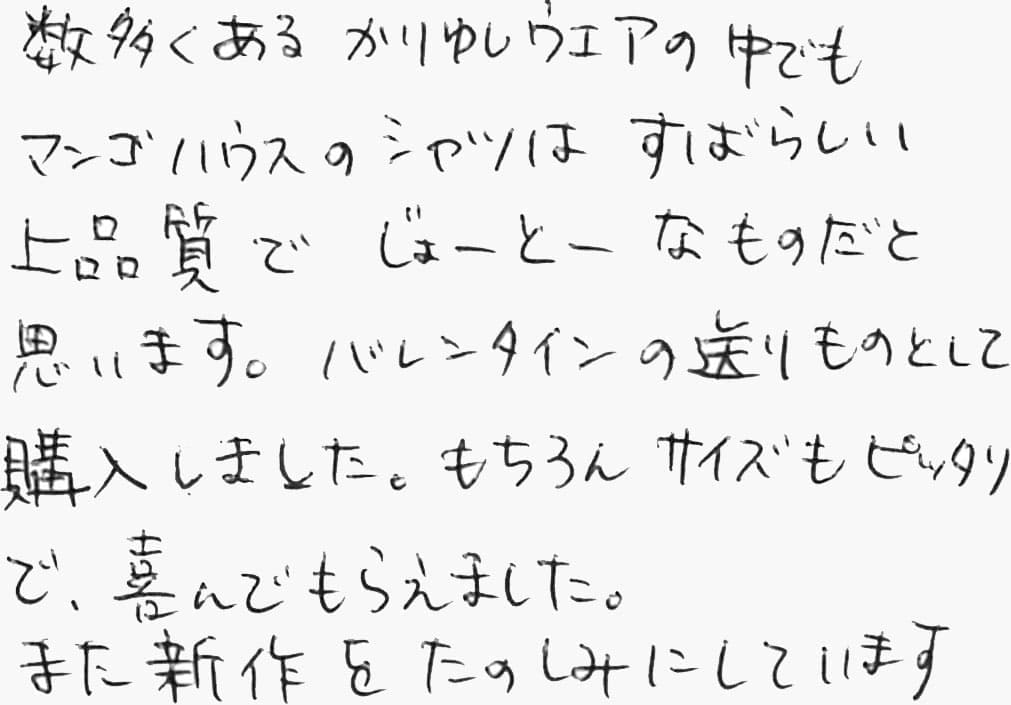 数多くある かりゆしウエアの中でも
マンゴハウスのシャツは すばらしい
上品質で じょーとーなものだと
思います。バレンタインの送りものとして
購入しました。もちろん サイズもピッタリ
で、喜んでもらえました。
また新作をたのしみにしています